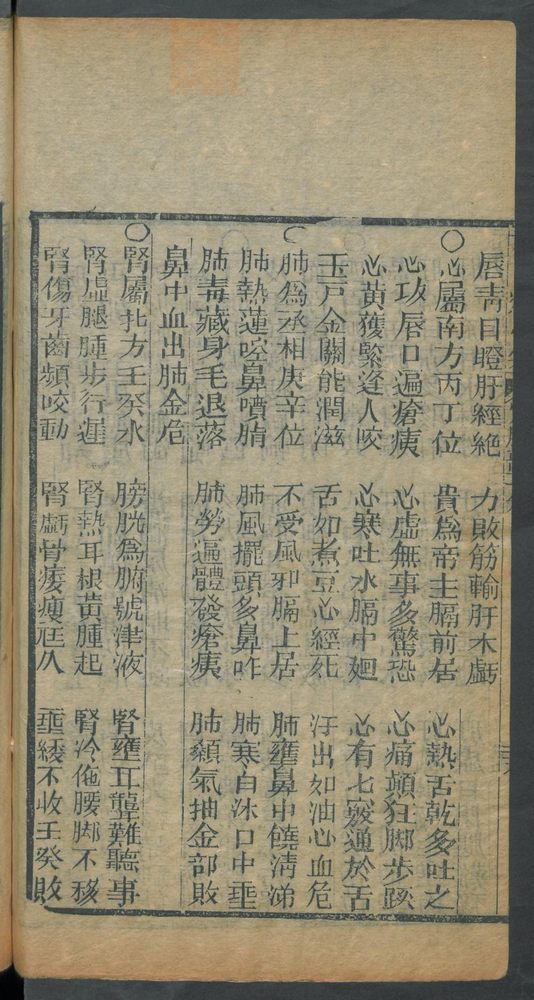 唇青目瞪肝經絶 力敗筋輸肝木虧
〇心屬南方丙丁位 貴為帝主膈前居 心熱舌乾多吐之
心攻唇口遍瘡痍 心虛無事多驚恐 心痛顛狂脚步蹊
心黃獲緊逢人咬 心寒吐水膈中廻 心有七竅通於舌
玉戸金關能潤滋 舌如煮豆心經死 汗出如油心血危
〇肺為丞相庚辛位 不受風邪膈上居 肺壅鼻中饒清涕
肺熱蓮啌鼻噴脂 肺風擺頭多鼻咋 肺寒白沫口中垂
肺毒藏身毛退落 肺勞遍體發瘡痍 肺顙氣抽金部敗
鼻中血出肺金危
〇腎屬北方壬癸水 膀胱為腑號津液 腎壅耳聾難聽事
腎虛腿腫步行遲 腎熱耳根黃腫起 腎冷拖腰脚不移
腎傷牙齒頻咬動 腎虧骨痿瘦尫八 垂縷不收壬癸敗